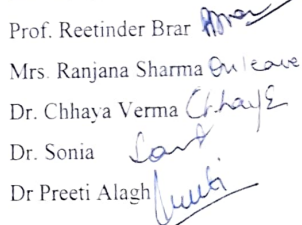 Prof. Reetinder Brar Brar
Mrs. Ranjana Sharma On leave
Dr. Chhaya Verma Chhaya
Dr. Sonia
Dr Preeti Alagh Preeti